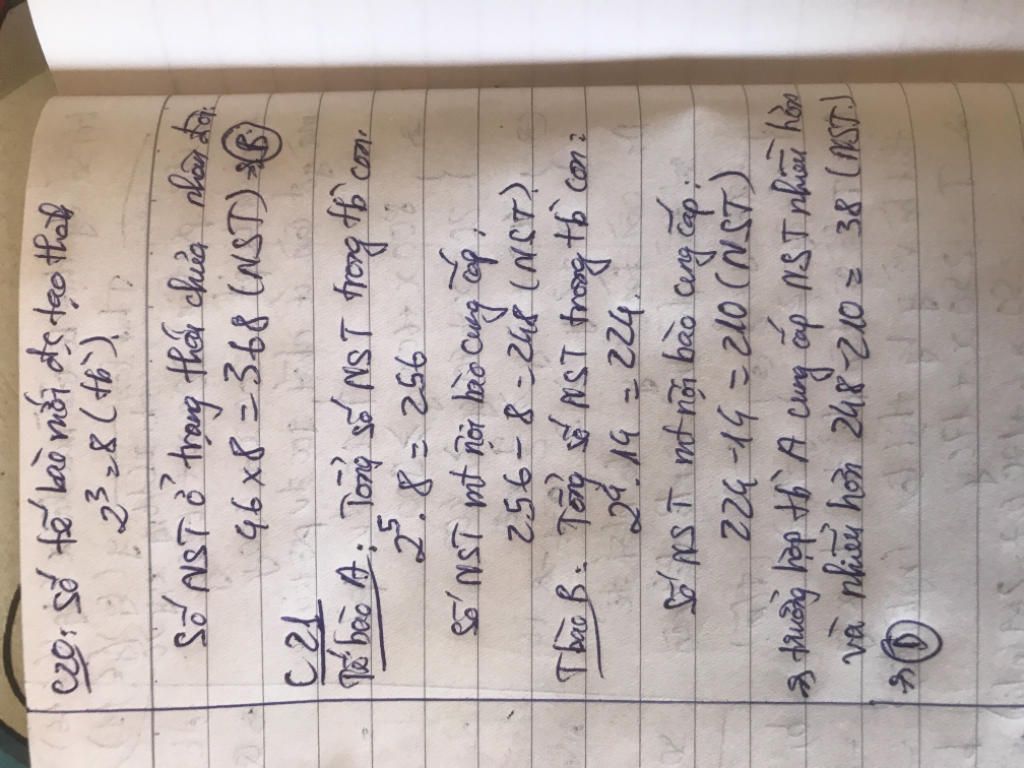 C20: Số tế bào mới đc tạo thành
2³ = 8 (tb)
Số NST ở trạng thái chưa nhân đôi:
46 x 8 = 368 (NST) => B.
C21
Tế bào A: Tổng số NST trong tb con:
2⁵. 8 = 256
Số NST mt nội bào cung cấp:
256 - 8 = 248 (NST)
T bào B: Tổng số NST trong tb con:
2⁴. 14 = 224
Số NST mt nội bào cung cấp:
224 - 14 = 210 (NST)
=> trường hợp tb A cung cấp NST nhiều hơn
và nhiều hơn 248 - 210 = 38 (NST)
=> D